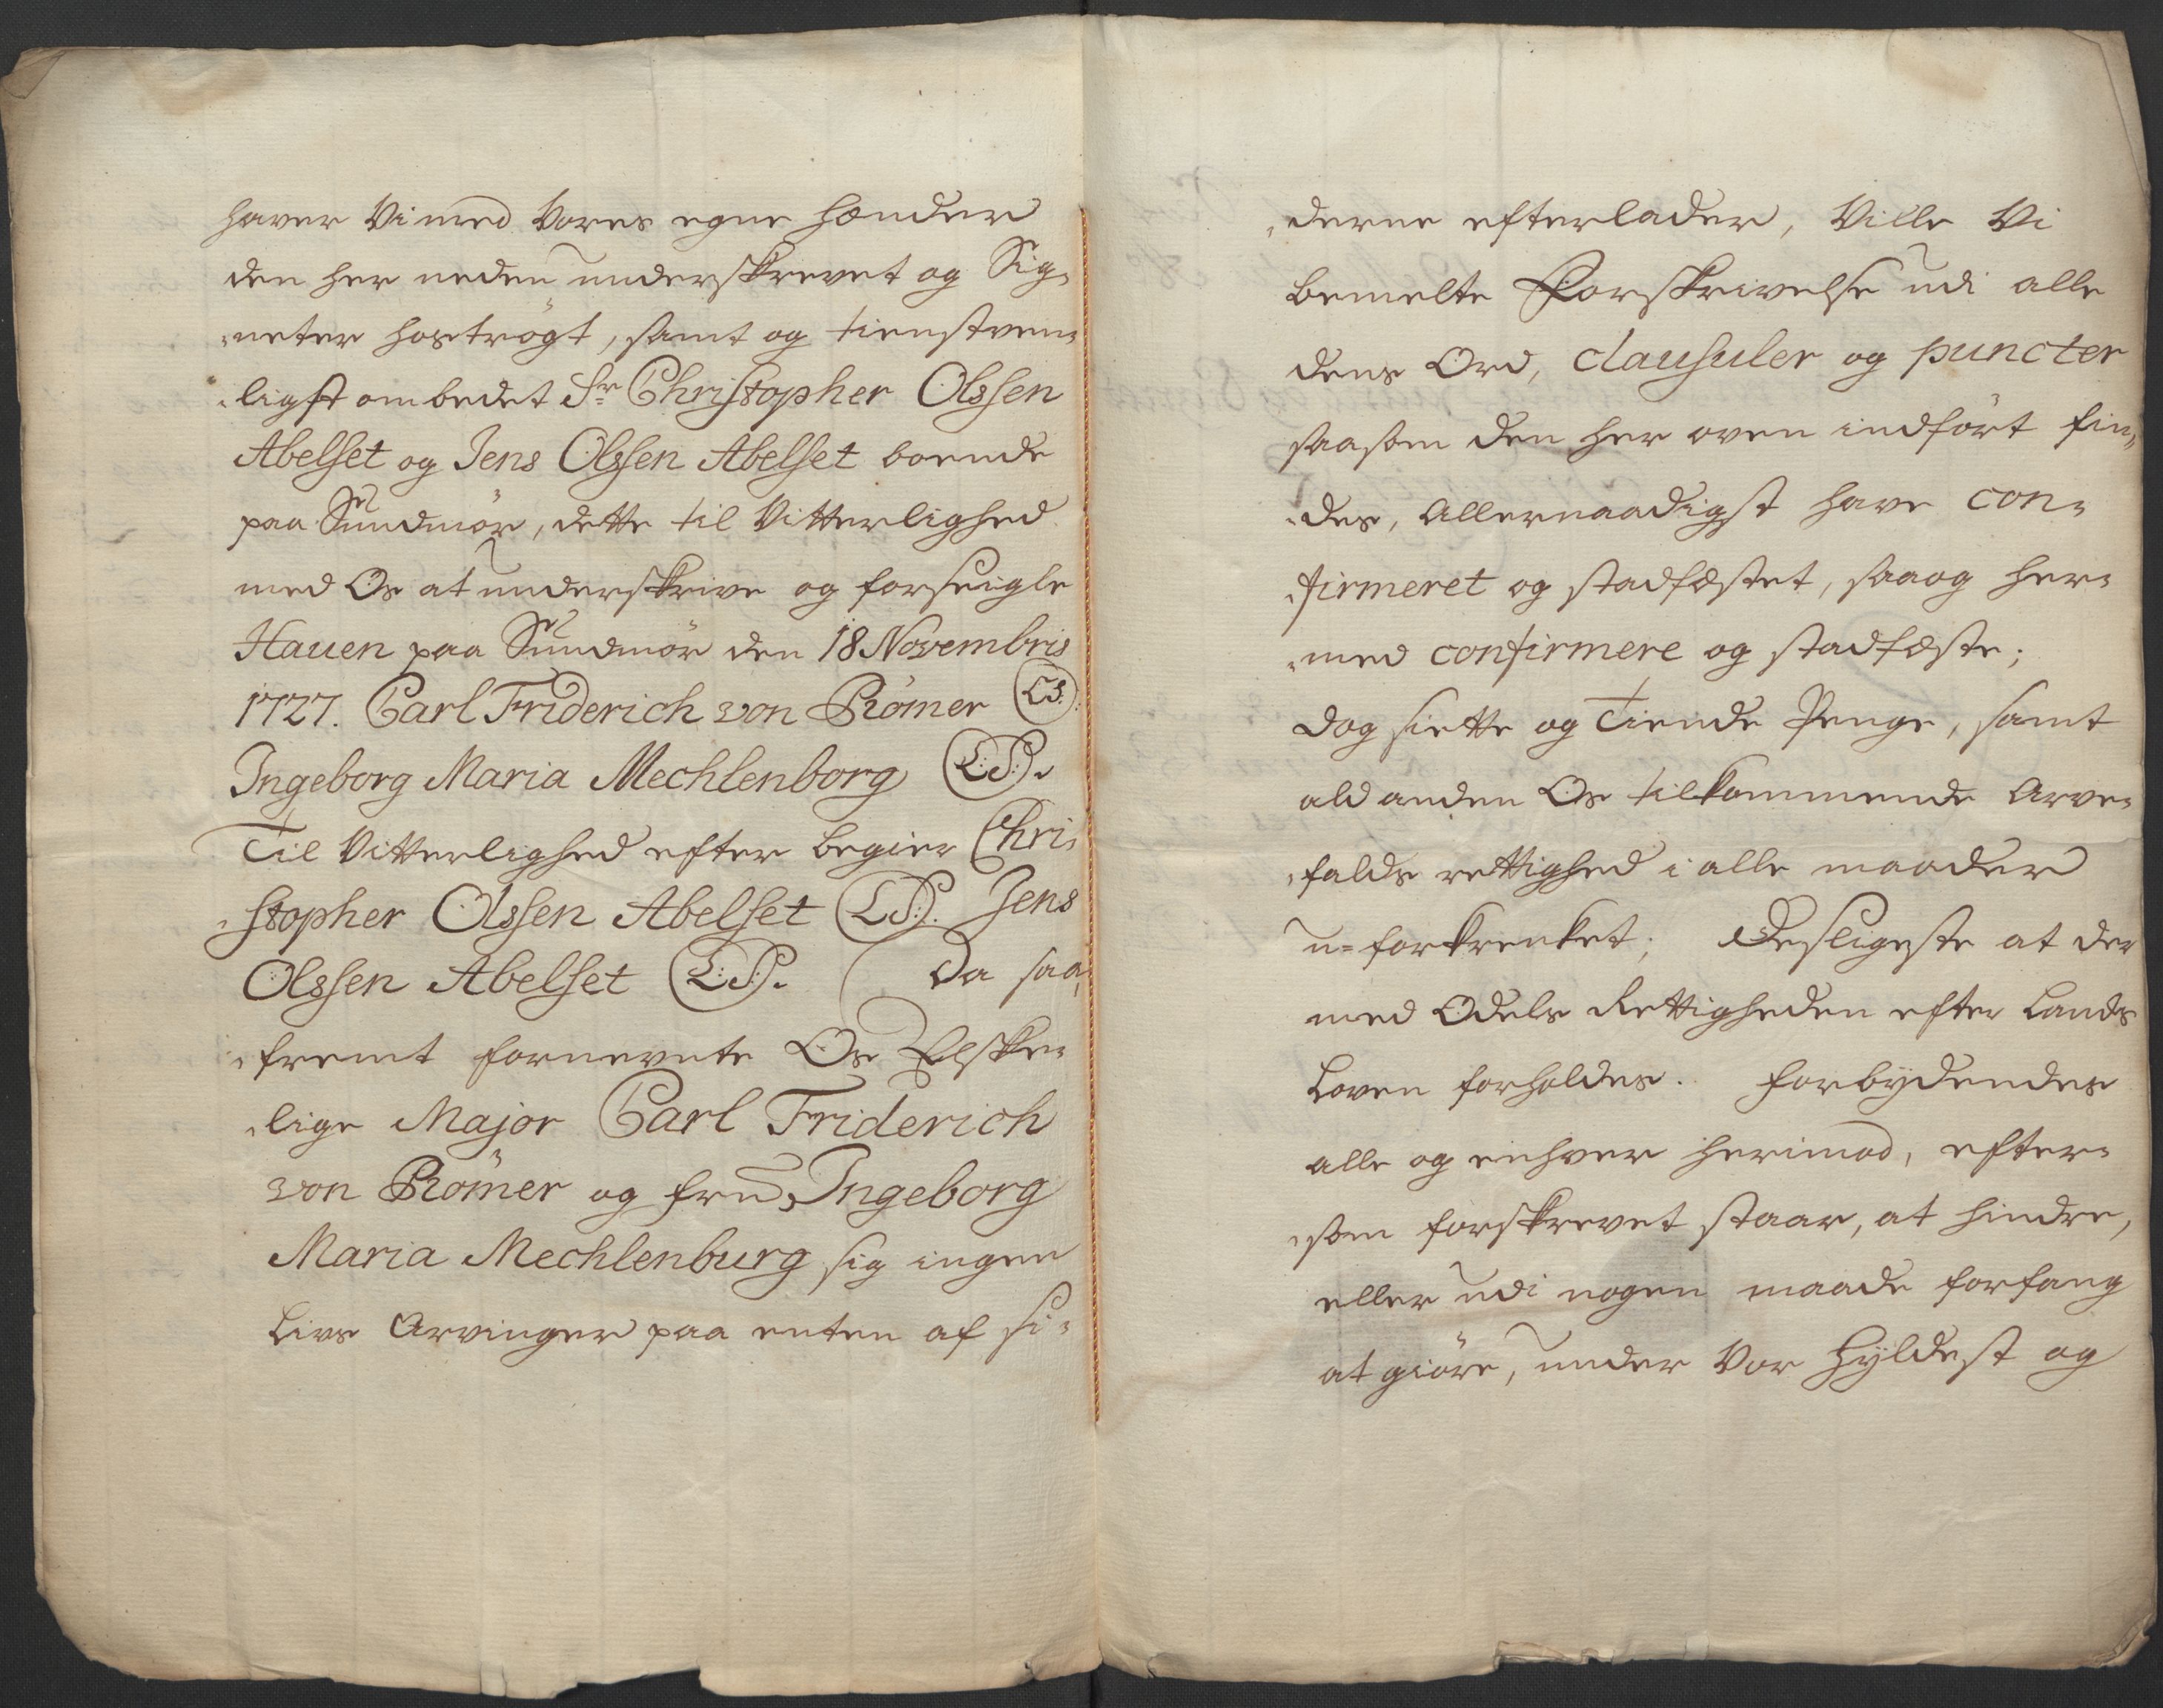 haver Vi med Vores egne hænder
den her neden underskrevet og Sig-
-neter hoströgt, samt og tienstven-
-ligst ombedet Sr Christopher Olssen
Abelset og Jens Olssen Abelset boende
paa Sundmör, dette til Vitterlighed
med Os at underskrive og forseigle
Hauen paa Sundmör den 18 Novembris
1727. Carl Friderich von Römer (L.S.)
Ingeborg Maria Mechlenborg (L:S:).
Til Vitterlighed efter begier Chri-
-stopher Olssen Abelset (L:S:). Jens
Olssen Abelset (L:S:). Da saa-
-fremt fornevnte Os Elske-
-lige Major Carl Friderich
von Römer og frue Ingeborg
Maria Mechlenburg sig ingen
Livs Arvinger paa enten af si-
-derne efterlader, Ville Vi
bemelte Forskrivelse udi alle
dens Ord, clausuler og puncter
saasom den her oven indfört fin-
-des, Allernaadigst have con-
-firmeret og stadfæstet, saa og her-
-med confirmere og stadfæste;
dog siette og Tiende Penge, samt
ald anden Os tilkommende Arve-
-falds rettighed i alle maader
u-forkrenket; Desligeste at der
med Odels Rettigheden efter Lands
Loven forholdes. Forbydendes
alle og enhver herimod, efter-
-som forskrevet staar, at hindre,
eller udi nogen maade forfang
at giöre, under Vor Hyldest og